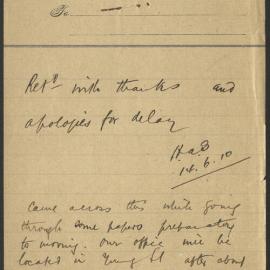 To
Retd with thanks and
apologies for delay
H.a.B
14.6.10
Came across this while going
through some papers preparatory
to moving. Our office will be
located in Young St after about